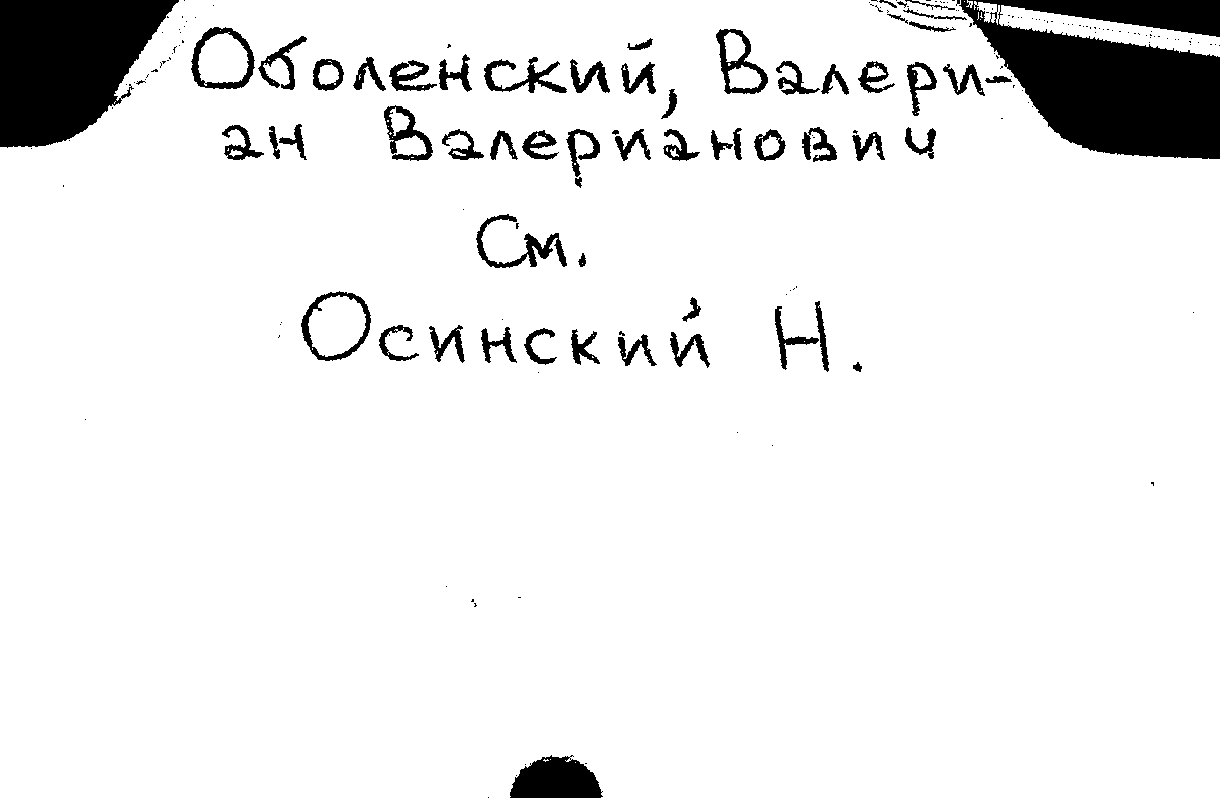 Оболенский, Валери-
ан Валерианович
См.
Осинский Н.